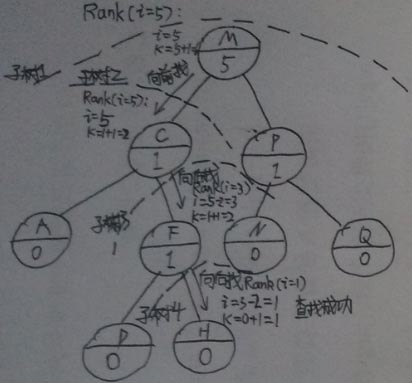 Rank(i=5):
i=5
K=5+1=
M
5
子树1
子树2
向前找
Rank(i=5):
i=5
K=1+1=2
C
1
P
1
向后找
Rank(i=3)
i=5-2=3
K=1+1=2
A
0
子树3
F
1
N
0
Q
0
向向找Rank(i=1)
i=3-2=1
K=0+1=1
查找成功
子树4
D
0
H
0